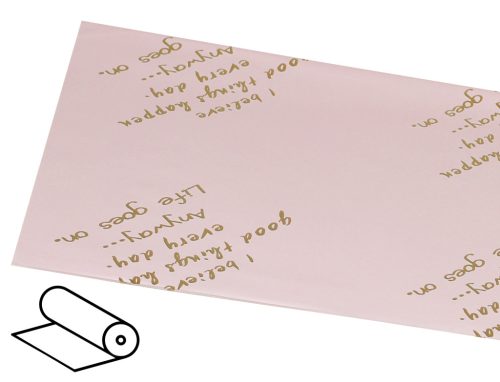 I believe
good things happen
every day.
Anyway...
goes on.
happen
day.
goes on.
I believe
good things
every day.
Anyway...
Life goes on.
day.
Anyway...
Life goes on.